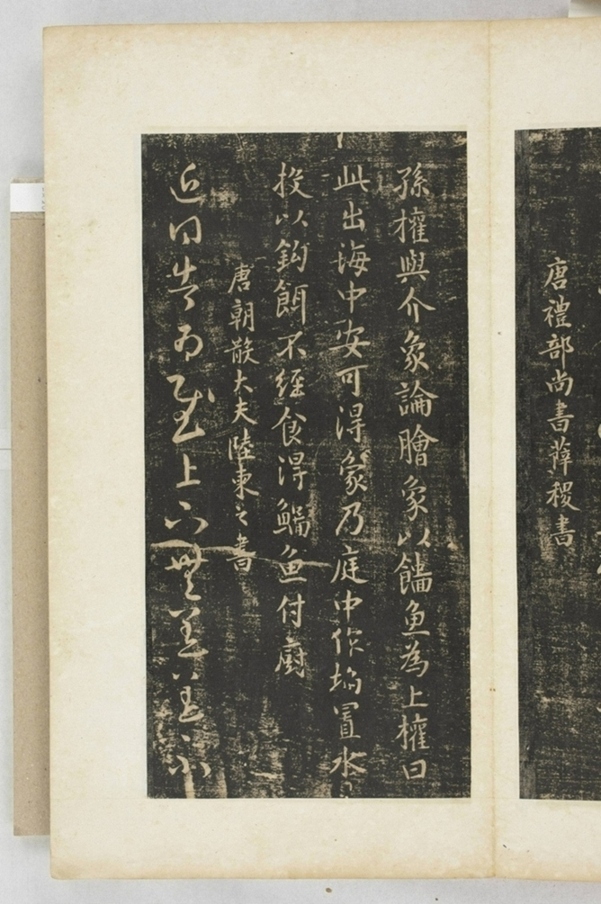 唐禮部尚書薛稷書
孫權與介象論膾象以鱕魚為上權曰
此出海中安可得象乃庭中作坎置水
投以鈎餌不經食得鯔魚付廚
唐朝散大夫陸柬之書
近日告為上下